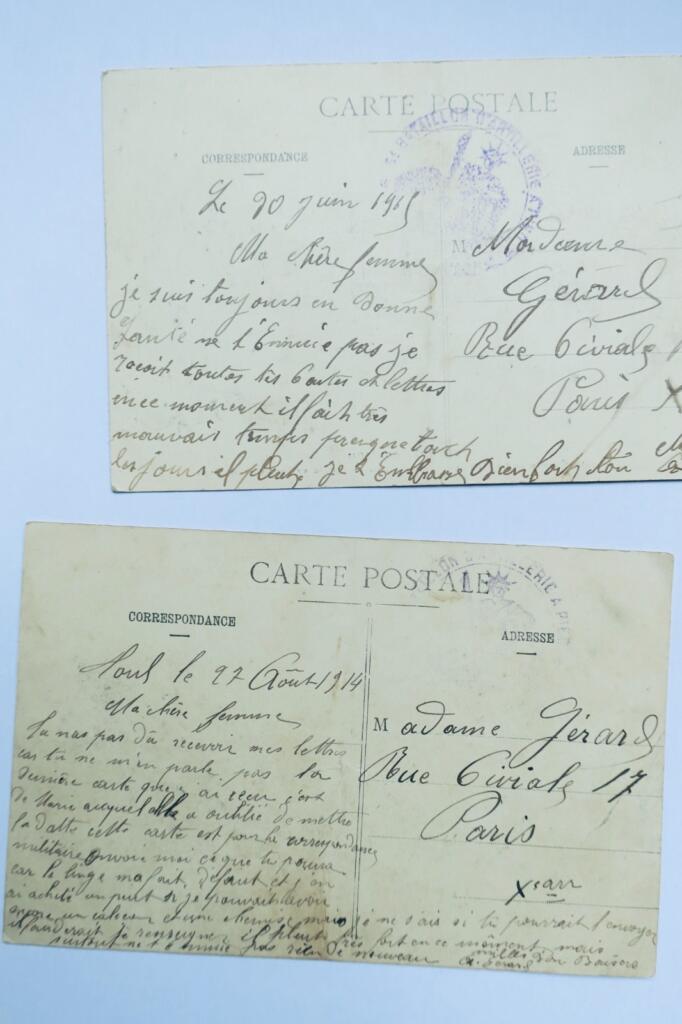 CARTE POSTALE
BATAILLON D'ARTILLERIE A
CORRESPONDANCE
ADRESSE
Le 20 juin 1915
Ma chère femme
je suis toujours en Bonne
Santé ne t'Ennuie pas je
reçoit toutes tes Cartes et lettres
en ce moment il fait très
mauvais temps presque touch
les jours il pleut je t'Embrasse Bien fort ton
M Madame
Gérard
Rue Civiale
Paris X
CARTE POSTALE
LLERIE A PIE
CORRESPONDANCE
ADRESSE
Toul le 27 Août 1914
Ma chère femme
tu nas pas dû recevoir mes lettres
car tu ne m'en parle pas la
dernière carte que j'ai reçu c'est
de Marie acquel elle a oublié de mettre
la datte cette carte est pour la correspondance
militaire envoie moi ce que tu pourra
car le linge ma fait défaut et j'en
ai acheté un peut si je pouvait avoir
encore un caleçon et une chemise mais je ne sais si tu pourrait l'envoyer
il faudrait te renseigner il pleut très fort en ce moment mais
surtout ne t'ennuie pas rien de nouveau
milles Baisers
Gérard
M adame Gérard
Rue Civiale 17
Paris
X arr